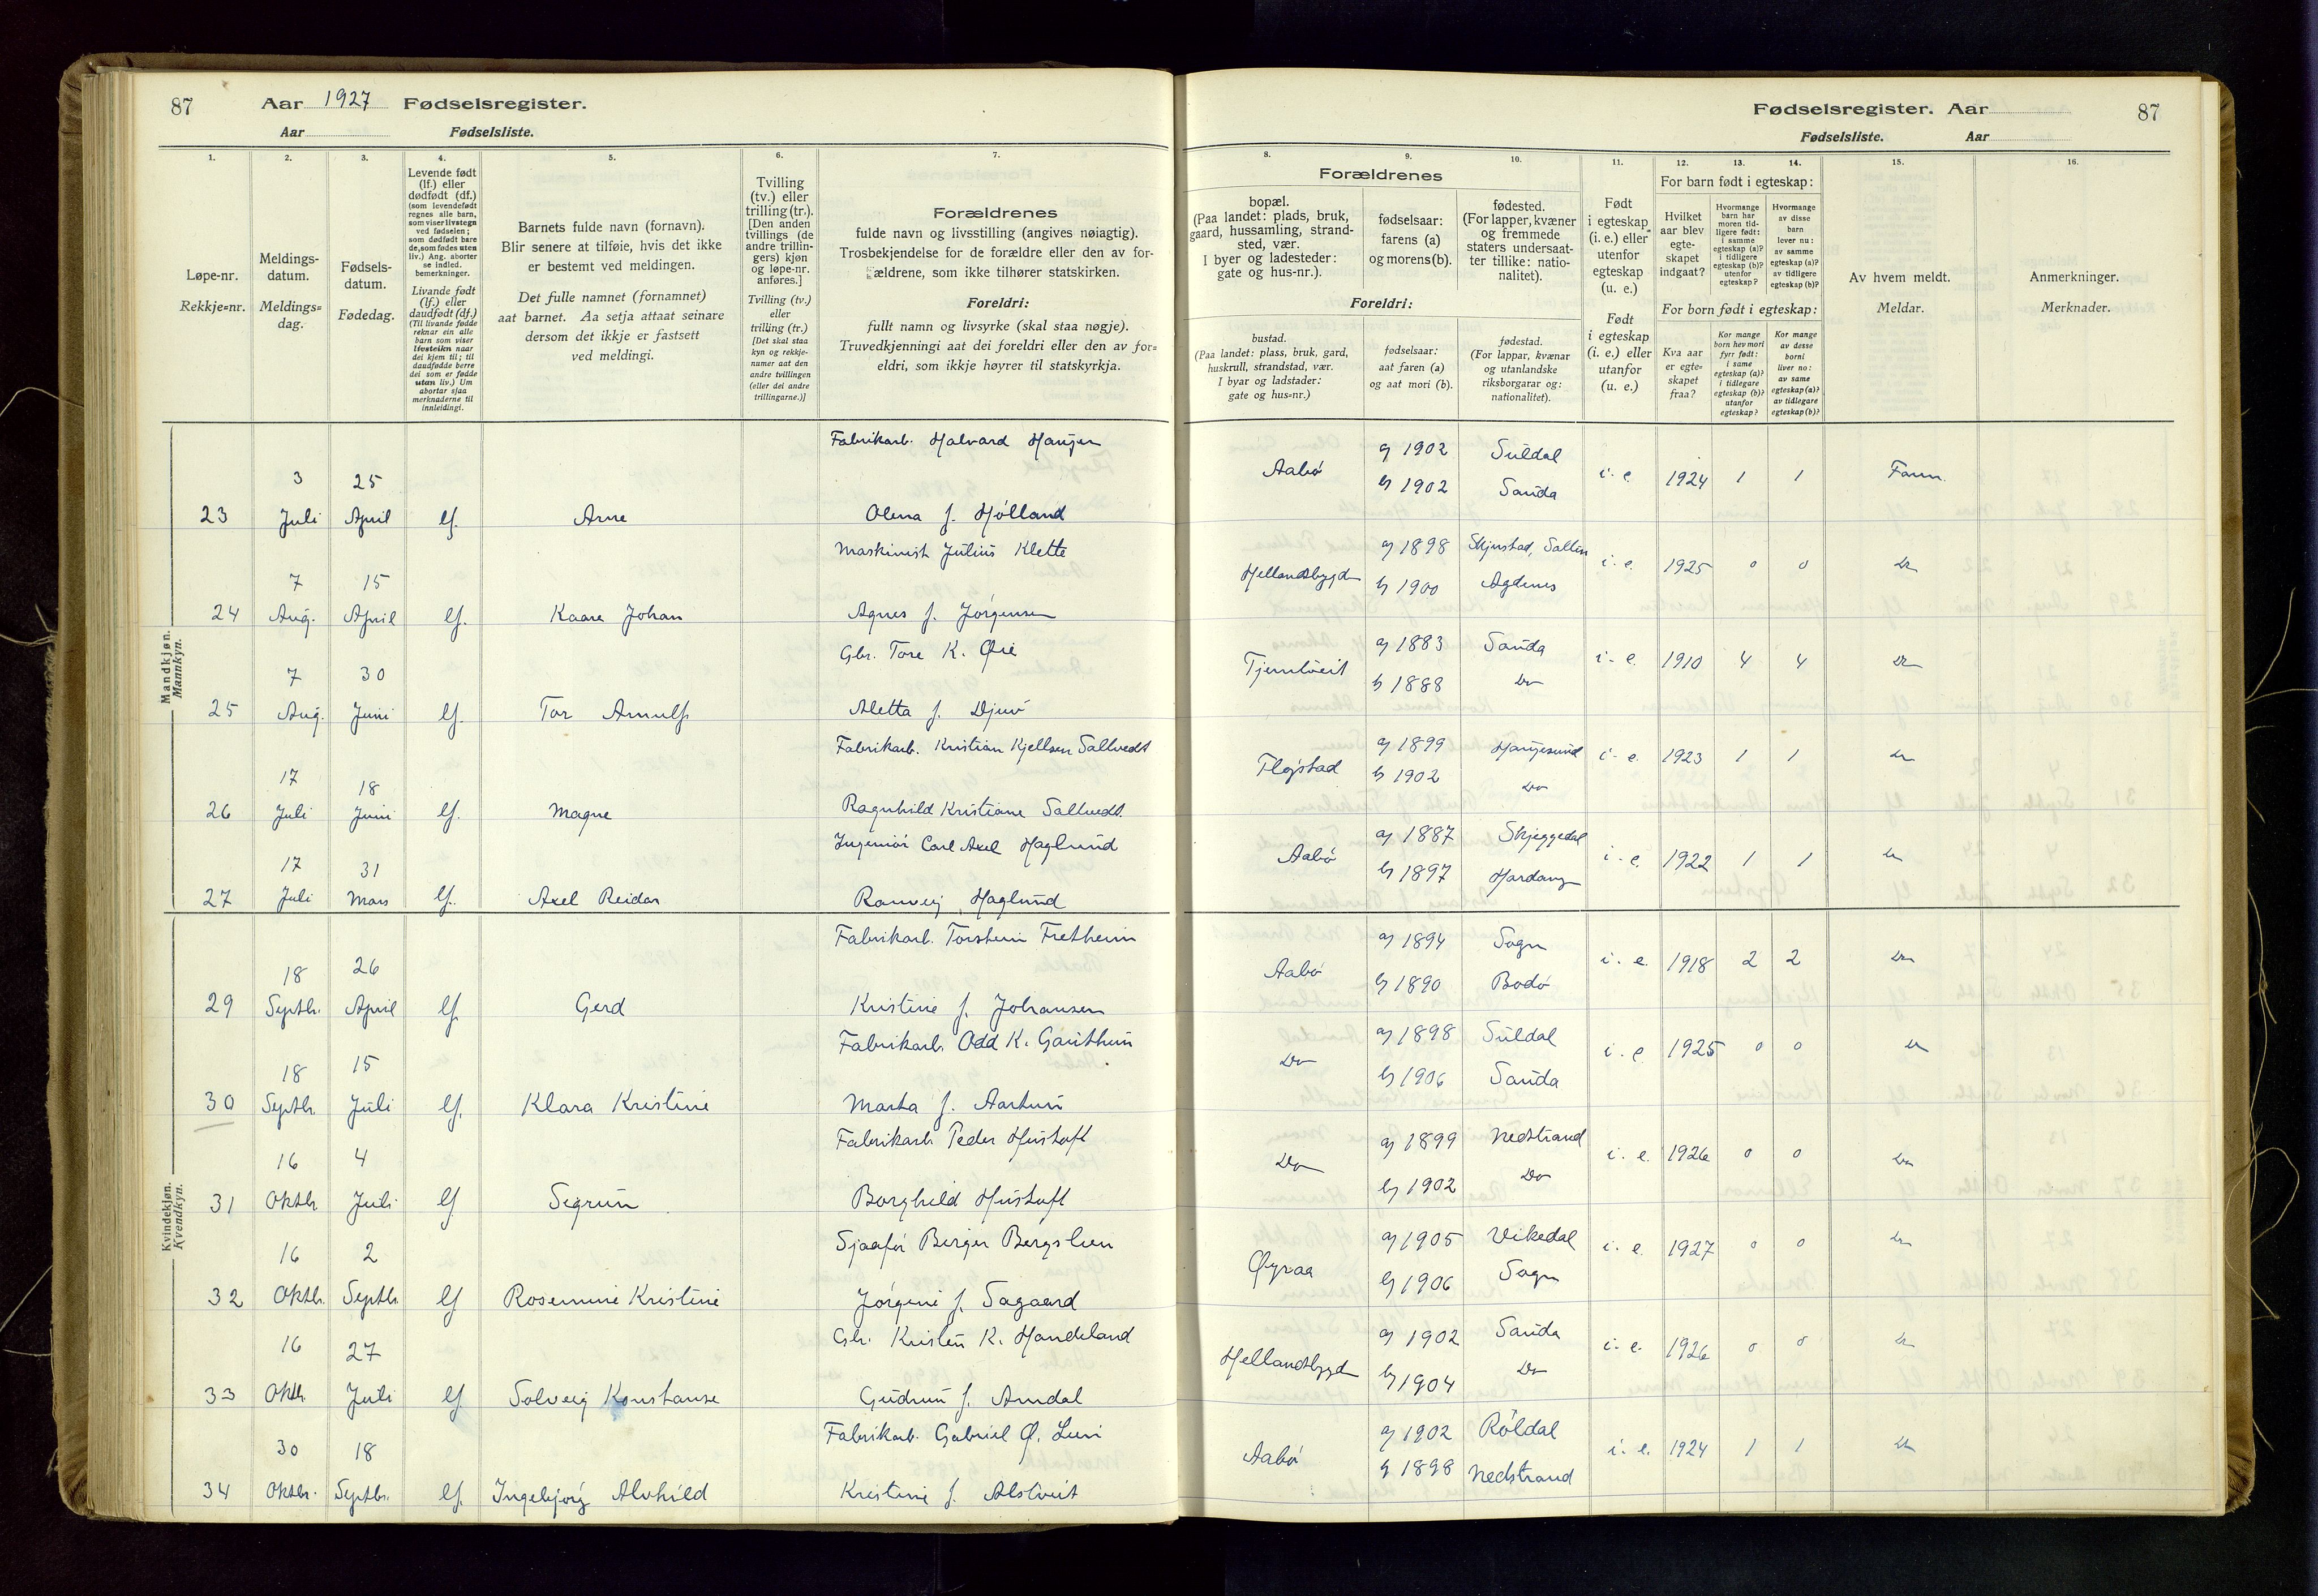 87 Aar 1927 Fødselsregister.
Aar Fødselsliste.
Fødselsregister. Aar 87
Fødselsliste. Aar
1. 2. 3. 4. 5. 6. 7. 8. 9. 10. 11. 12. 13. 14. 15. 16.
Løpe-nr.
Rekkje=nr.
Meldings-
datum.
Meldings=
dag.
Fødsels-
datum.
Fødedag.
Levende født
(lf.) eller
dødfødt (df.)
(som levendefødt
regnes alle barn,
som viser livstegn
ved fødselen;
som dødfødt bare
de, som fødes uten
liv.) Ang. aborter
se indled.
bemerkninger.
Livande født
(lf.) eller
daudfødt (df.)
(Til livande fødde
reknar ein alle
barn som viser
livsteikn naar
dei kjem til; til
daudfødde berre
dei som er fødde
utan liv.) Um
abortar sjaa
merknaderne til
innleidingi.
Barnets fulde navn (fornavn).
Blir senere at tilføie, hvis det ikke
er bestemt ved meldingen.
Det fulle namnet (fornamnet)
aat barnet. Aa setja attaat seinare
dersom det ikkje er fastsett
ved meldingi.
Tvilling
(tv.) eller
trilling (tr.).
[Den anden
tvillings (de
andre trillin-
gers) kjøn
og løpe-nr.
anføres.]
Tvilling (tv.)
eller
trilling (tr.)
[Det skal staa
kyn og rekkje-
numer aat den
andre tvillingen
(eller dei andre
trillingarne.)]
Forældrenes
fulde navn og livsstilling (angives nøiagtig).
Trosbekjendelse for de forældre eller den av for-
ældrene, som ikke tilhører statskirken.
Foreldri:
fullt namn og livsyrke (skal staa nøgje).
Truvedkjenningi aat dei foreldri eller den av for=
eldri, som ikkje høyrer til statskyrkja.
Forældrenes
bopæl.
(Paa landet: plads, bruk,
gaard, hussamling, strand-
sted, vær.
I byer og ladesteder:
gate og hus-nr.).
fødselsaar:
farens (a)
og morens (b).
fødested.
(For lapper, kvæner
og fremmede
staters undersaat-
ter tillike: natio-
nalitet).
Foreldri:
bustad.
(Paa landet: plass, bruk, gard,
huskrull, strandstad, vær.
I byar og ladstader:
gate og hus=nr.)
fødselsaar:
aat faren (a)
og aat mori (b).
fødestad.
(For lappar, kvænar
og utanlandske
riksborgarar og:
nationalitet).
Født
i egteskap
(i. e.) eller
utenfor
egteskap
(u. e.)
Født
i egteskap
(i. e.) eller
utanfor
(u. e.)
For barn født i egteskap:
Hvilket
aar blev
egte-
skapet
indgaat?
Hvormange
barn har
moren tid-
ligere født:
i samme
egteskap (a)?
i tidligere
egteskap (b)?
utenfor
egteskap?
Hvormange
av disse
barn
lever nu:
av samme
egteskap (a)?
av tidligere
egteskap (b)?
For born født i egteskap:
Kva aar
er egte=
skapet
fraa?
Kor mange
born hev mori
fyrr født:
i same
egteskap (a)?
i tidlegare
egteskap (b)?
utanfor
egteskap?
Kor mange
av desse
borni
liver no:
av same
egteskap (a)?
av tidlegare
egteskap (b)?
Av hvem meldt.
Meldar.
Anmerkninger.
Merknader.
Mandkjøn.
Mannkyn.
Fabrikarb. Halvard Haugen Aabø a 1902 Suldal i. e. 1924 1 1 Faren
23 3 Juli 25 April lf. Arne Olena f. Hølland b 1902 Sauda
Maskinist Julius Klette Hellandsbygd a 1898 Skjerstad, Salten i. e. 1925 0 0 Do
24 7 Aug. 15 April lf. Kaare Johan Agnes f. Jørgensen b 1900 Agdenes
Gbr. Tore K. Øie Tjerntveit a 1883 Sauda i. e. 1910 4 4 Do
25 7 Aug. 30 Juni lf. Tor Arnulf Aletta f. Djuv b 1888 Do
Fabrikarb. Kristian Kjellsen Saltvedt Fløgstad a 1899 Haugesund i. e. 1923 1 1 Do
26 17 Juli 18 Juni lf. Magne Ragnhild Kristiane Saltvedt b 1902 Do
Ingeniør Carl Axel Haglund Aabø a 1887 Skjeggedal i. e. 1922 1 1 Do
27 17 Juli 31 Mars lf. Axel Reidar Ranveig Haglund b 1897 Hardang
Kvindekjøn.
Kvendkyn.
Fabrikarb. Torstein Fretheim Aabø a 1894 Sogn i. e. 1918 2 2 Do
29 18 Septbr. 26 April lf. Gerd Kristine f. Johansen b 1890 Bodø
Fabrikarb. Odd K. Gauthun Do a 1898 Suldal i. e. 1925 0 0 Do
30 18 Septbr. 15 Juli lf. Klara Kristine Marta f. Aartun b 1906 Sauda
Fabrikarb. Peder Hustoft Do a 1899 Nedstrand i. e. 1926 0 0 Do
31 16 Oktbr 4 Juli lf Sigrun Borghild Hustoft b 1902 Do
Sjaafør Birger Bergslien Øyraa a 1905 Vikedal i. e. 1927 0 0 Do
32 16 Oktbr. 2 Septbr. lf Rosemine Kristine Jørgine f. Sagaard b 1906 Sogn
Gbr. Kristen K. Handeland Hellandsbygd a 1902 Sauda i. e. 1926 0 0 Do
33 16 Oktbr. 27 Juli lf. Solveig Konstanse Gudrun f. Amdal b 1904 Do
Fabrikarb. Gabriel Ø. Lien Aabø a 1902 Røldal i. e. 1924 1 1 Do
34 30 Oktbr. 18 Septbr. lf. Ingebjørg Alvhild Kristine f. Alstveit b 1898 Nedstrand